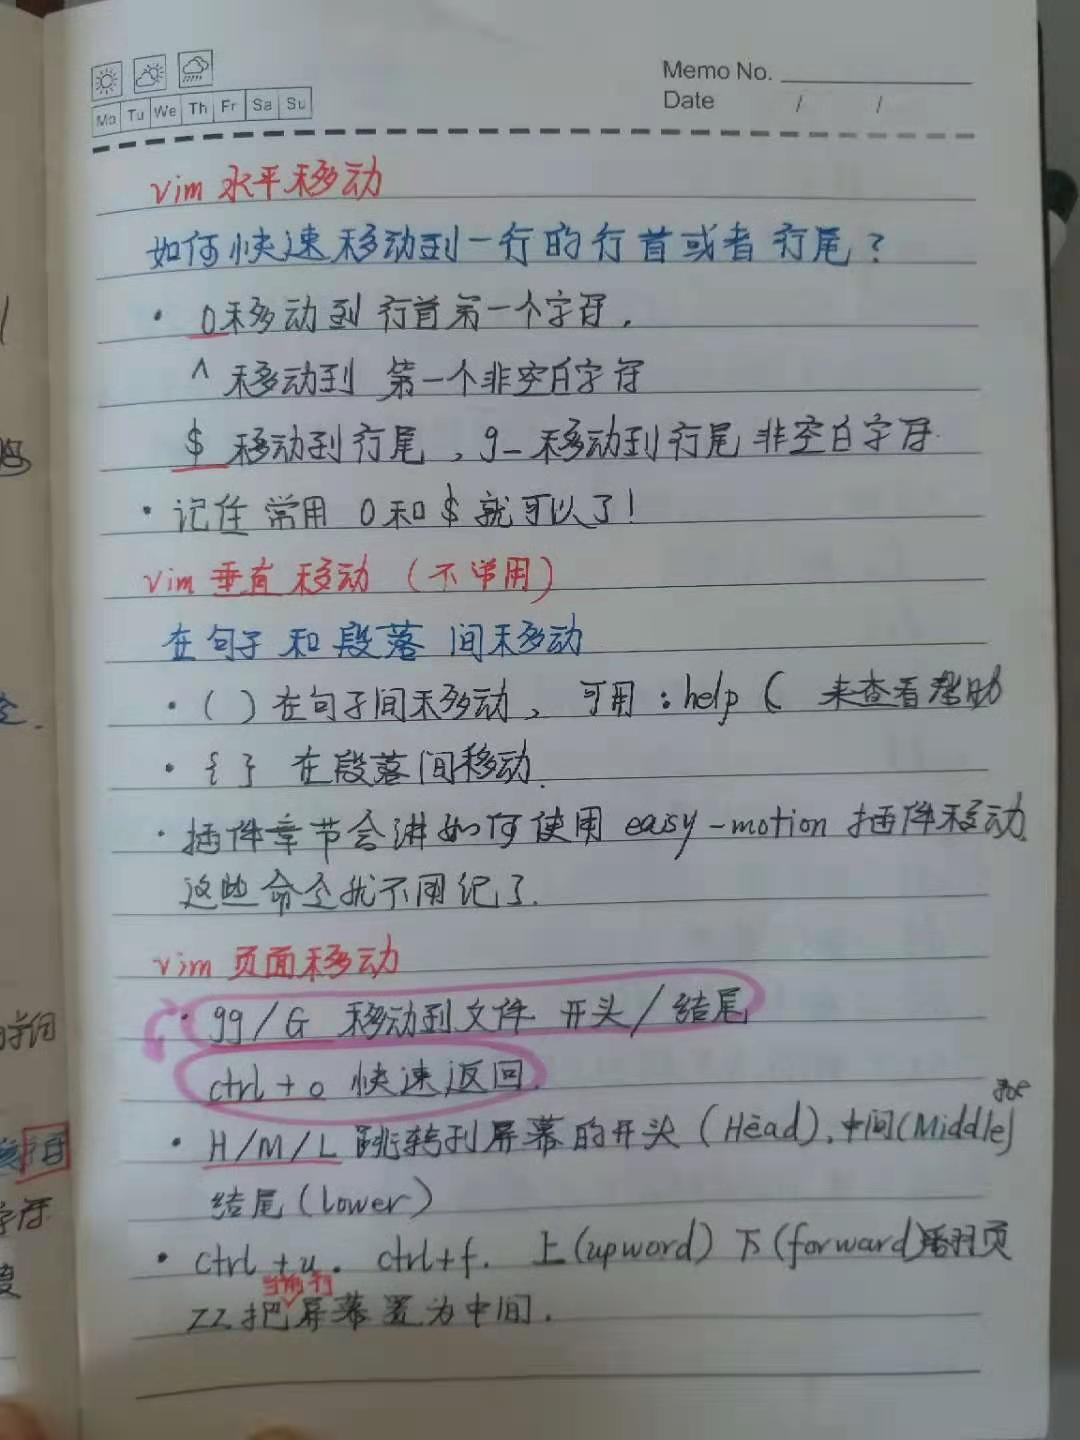 Memo No.
Date / /
Mo Tu We Th Fr Sa Su
vim 水平移动
如何快速移动到一行的行首或者行尾?
· 0移动到行首第一个字符.
^ 移动到 第一个非空白字符
$ 移动到行尾, g_移动到行尾非空白字符.
· 记住常用 0和$就可以了!
vim 垂直移动 (不常用)
在句子和段落间移动
· ( ) 在句子间移动, 可用 :help ( 来查看帮助
· { } 在段落间移动.
· 插件章节会讲如何使用 easy-motion 插件移动
这些命令就不用记了.
vim 页面移动
· gg/G 移动到文件 开头/结尾
ctrl + o 快速返回.
· H/M/L 跳转到屏幕的开头 (Head), 中间(Middle)
结尾 (lower)
· ctrl + u. ctrl+f. 上(upword) 下(forward)翻页
当前行
zz把屏幕置为中间.